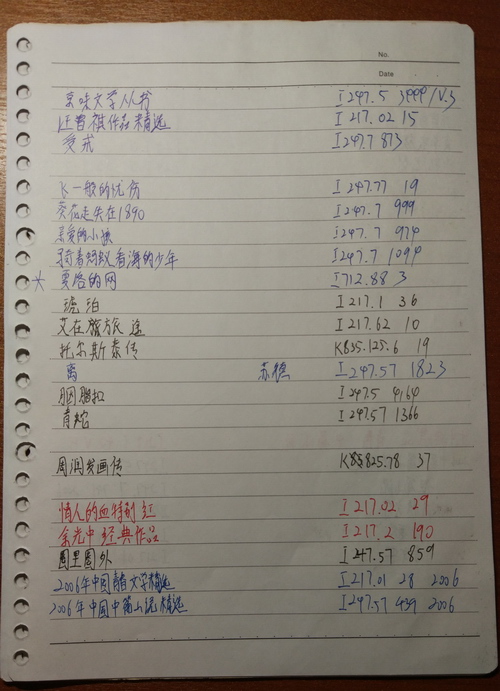 No.
Date
京味文学丛书 I247.5 3999/V.3
汪曾祺作品精选 I217.02 15
受戒 I247.7 873
飞一般的忧伤 I247.77 19
葵花走失在1890 I247.7 999
亲爱的小孩 I247.7 974
骑着蚂蚁看海的少年 I247.7 1094
夏洛的网 I712.88 3
琥珀 I217.1 36
艾在旅途 I217.62 10
托尔斯泰传 K835.125.6 19
离 苏德 I247.57 1823
胭脂扣 I247.5 4164
青蛇 I247.57 1366
周润发画传 K825.78 37
情人的血特别红 I217.02 29
余光中经典作品 I217.2 190
圈里圈外 I247.57 859
2006年中国青春文学精选 I217.01 28 2006
2006年中国中篇小说精选 I247.57 439 2006